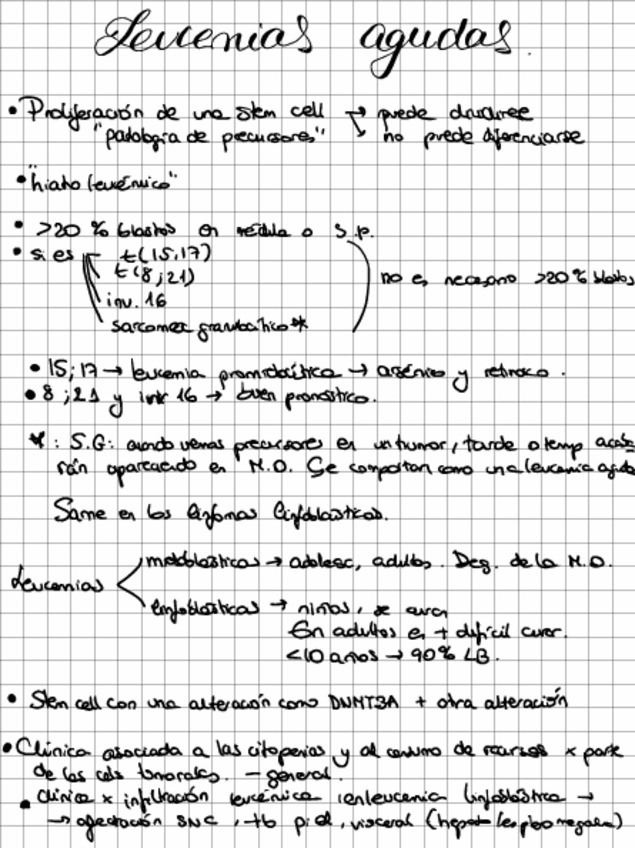 Leucemias agudas.
• Proliferación de una stem cell → puede dividirse
"patología de precursores" ↘ no puede diferenciarse
• "hiato leucémico"
• >20 % blastos en médula o S.p.
• si es t(15,17)
t(8;21)
inv. 16
sarcoma granulocítico *
no es necesario >20% blastos
• 15;17 → leucemia promielocítica → arsénico y retinoico.
• 8;21 y inv 16 → buen pronóstico.
* : S.G: cuando vemos precursores en un tumor, tarde o temp acaba
rán apareciendo en M.O. Se comportan como una leucemia aguda
Same en los linfomas linfoblásticos.
Leucemias
mieloblásticas → adolesc, adultos. Deg. de la M.O.
linfoblásticas → niños, se curan
En adultos es + difícil curar.
<10 años → 90% LB.
• Stem cell con una alteración como DNMT3A + otra alteración
• Clínica asociada a las citopenias y al consumo de recursos x parte
de las cels tumorales. - general.
• clínica x infiltración leucémica en leucemia linfoblástica →
→ afectación SNC, tb piel, visceral (hepatoesplenomegalia)